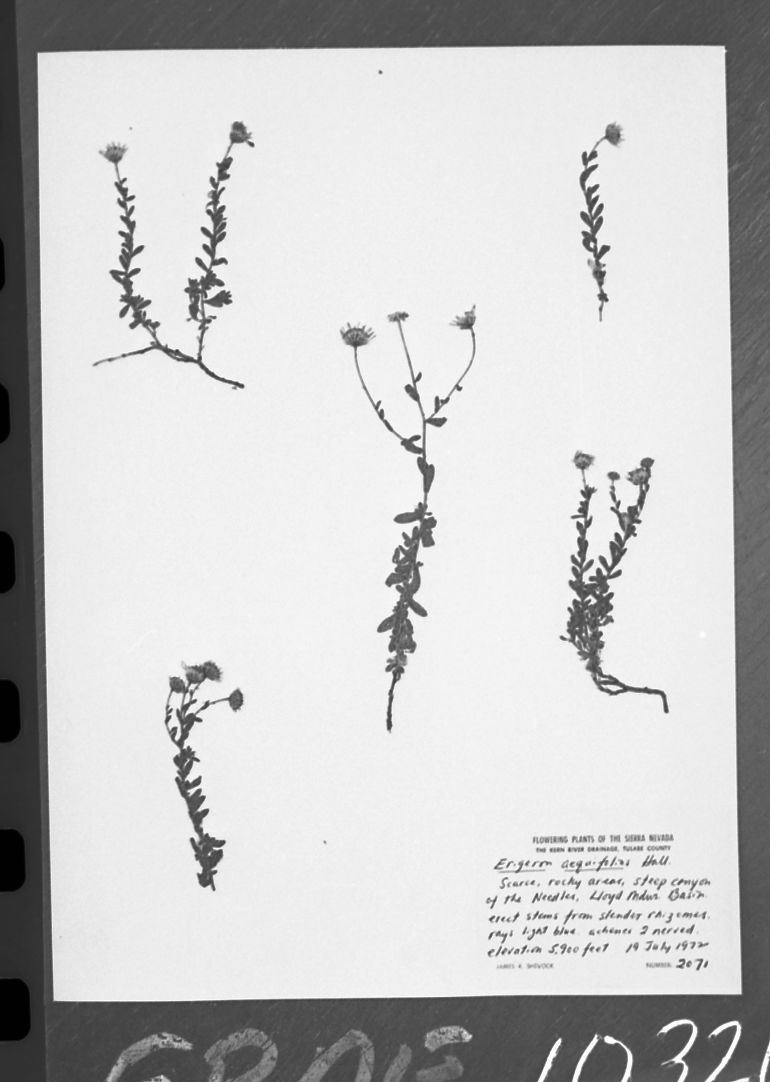 FLOWERING PLANTS OF THE SIERRA NEVADA
THE KERN RIVER DRAINAGE, TULARE COUNTY
Erigeron aequifolius Hall.
Scarce, rocky areas, steep canyon
of the Needles, Lloyd Mdws. Basin.
erect stems from slender rhizomes.
rays light blue. achenes 2 nerved.
elevation 5,900 feet 19 July 1972
JAMES R. SHEVOCK NUMBER 2071